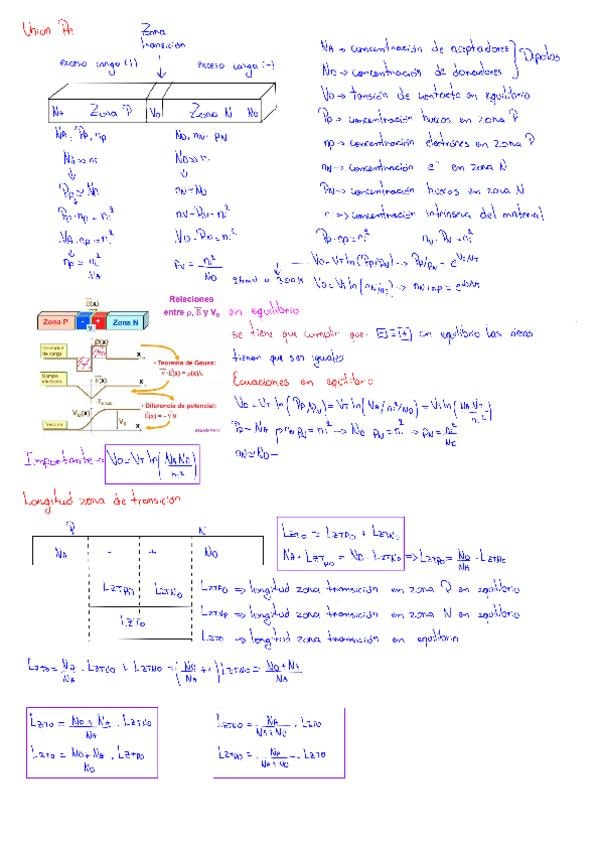 Unión PN
Zona
transición
exceso carga (+) exceso carga (-)
NA Zona P V0 Zona N ND
NA, Pp, np ND, nN, pN
NA>>ni ND>>ni
Pp≈NA nN≈ND
Pp·np=ni² nN·PN=ni²
NA·np=ni² ND·PN=ni²
np = ni²/NA PN = ni²/ND
NA → concentración de aceptadores } Dopados
ND → concentración de donadores
V0 → tensión de contacto en equilibrio
Pp → concentración huecos en zona P
np → concentración electrones en zona P
nN → concentración e⁻ en zona N
PN → concentración huecos en zona N
ni → concentración intrínseca del material
Pp·np=ni² nN·PN=ni²
V0=VT ln(Pp/PN) → Pp/PN = e^V0/VT
26mV a 300K V0=VT ln(nN/np) → nN/np = e^V0/VT
Relaciones
entre ρ, E y V0 en equilibrio
E(x)
Zona P - + Zona N
se tiene que cumplir que [-]=[+] en equilibrio las áreas
tienen que ser iguales
ρ(x)
x
Densidad
de carga
• Teorema de Gauss:
∇·E(x) = ρ(x)/ε
Campo
eléctrico
E(x)
x
• Diferencia de potencial:
E(x) = - ∇V
V0(x)
V0
x
Tensión
Ecuaciones en equilibrio
V0 = VT ln(Pp/PN) = VT ln(NA/ni²/ND) = VT ln(NA·ND/ni²)
Pp=NA PN·nN=ni² → ND·PN=ni² → PN=ni²/ND
nN=ND
Importante → V0=VT ln(NA·ND/ni²)
Longitud zona de transición
P N
NA - + ND
LZTP0 LZTN0
LZT0
LZT0 = LZTP0 + LZTN0
NA·LZTP0 = ND·LZTN0 => LZTP0 = ND/NA · LZTN0
LZTP0 => longitud zona transición en zona P en equilibrio
LZTN0 => longitud zona transición en zona N en equilibrio
LZT0 => longitud zona transición en equilibrio
LZT0 = ND/NA · LZTN0 + LZTN0 = (ND/NA + 1) LZTN0 = ND+NA/NA
LZT0 = ND+NA/NA · LZTN0
LZT0 = ND+NA/ND · LZTP0
LZTN0 = NA/NA+ND · LZT0
LZTP0 = NA/NA+ND · LZT0